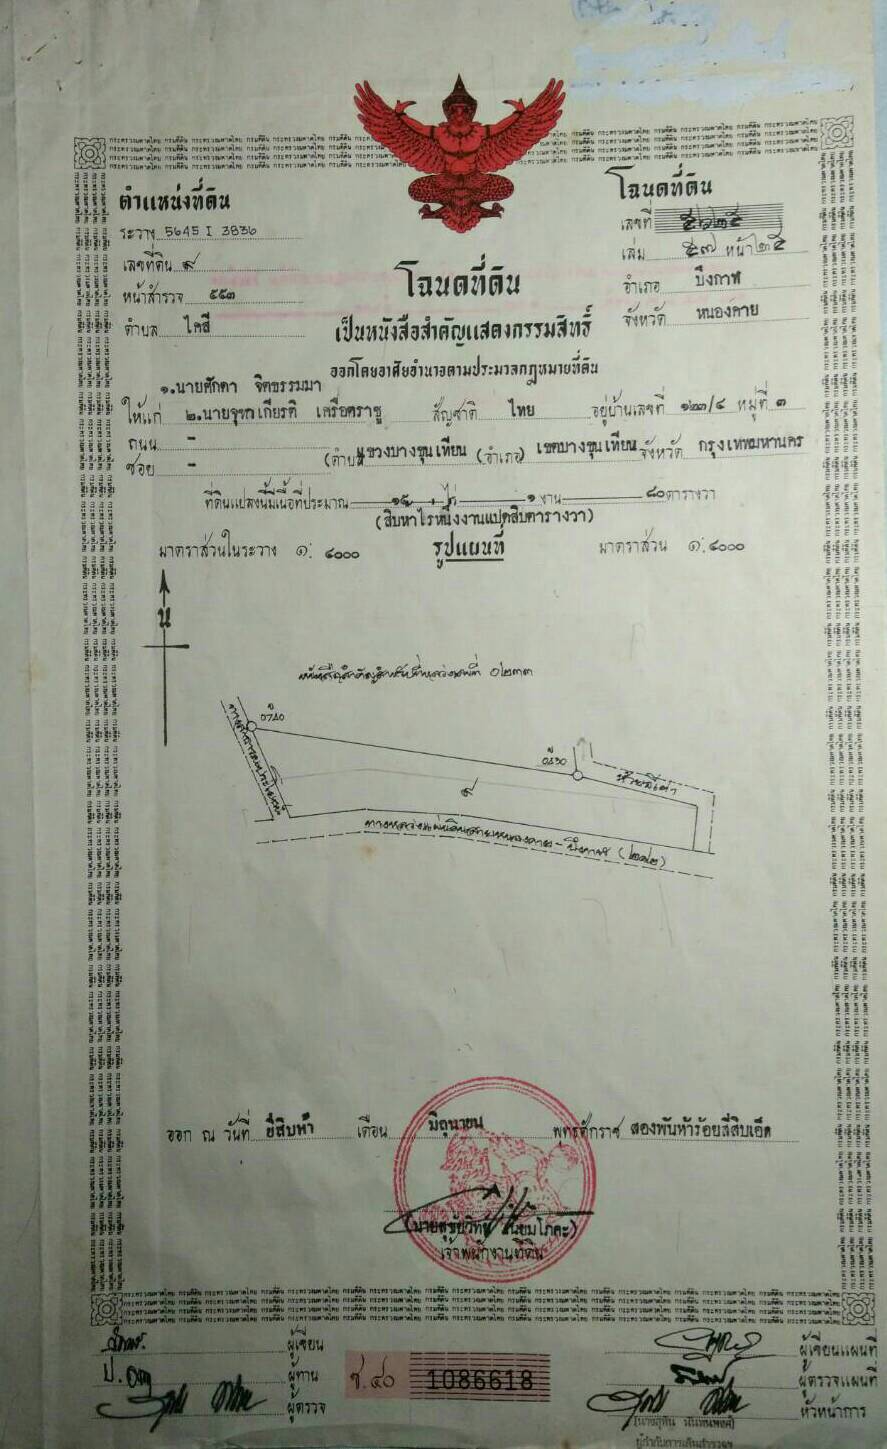 ตำแหน่งที่ดิน
โฉนดที่ดิน
ระวาง 5645 I 3836
เลขที่ ๕๖๒๕
เลขที่ดิน ๙
เล่ม ๕๗ หน้า ๒๕
หน้าสำรวจ ๕๕๓
อำเภอ บึงกาฬ
ตำบล ไคสี
จังหวัด หนองคาย
โฉนดที่ดิน
เป็นหนังสือสำคัญแสดงกรรมสิทธิ์
ออกโดยอาศัยอำนาจตามประมวลกฎหมายที่ดิน
๑.นายศักดา จิตธรรมมา
ให้แก่ ๒.นายจุฑาเกียรติ เครือตราชู สัญชาติ ไทย อยู่บ้านเลขที่ ๑๒๓/๔ หมู่ที่ ๓
ถนน -
ซอย - (ตำบล) แขวงบางขุนเทียน (อำเภอ) เขตบางขุนเทียน จังหวัด กรุงเทพมหานคร
ที่ดินแปลงนี้มีเนื้อที่ประมาณ ๑๕ ไร่ ๑ งาน ๘๐ ตารางวา
(สิบห้าไร่หนึ่งงานแปดสิบตารางวา)
มาตราส่วนในระวาง ๑: ๔๐๐๐ รูปแผนที่ มาตราส่วน ๑:๔๐๐๐
น
๐๒๓๓
๙
ห้วยมีเต่า
ทางหลวงแผ่นดินสายหนองคาย - บึงกาฬ (๒๑๒)
ออก ณ วันที่ ยี่สิบห้า เดือน มิถุนายน พุทธศักราช สองพันห้าร้อยสี่สิบเอ็ด
เจ้าพนักงานที่ดิน
ผู้เขียน
ผู้ทาน
ผู้ตรวจ
ช.๔๐ 1086618
ผู้เขียนแผนที่
ผู้ตรวจแผนที่
หัวหน้าการ